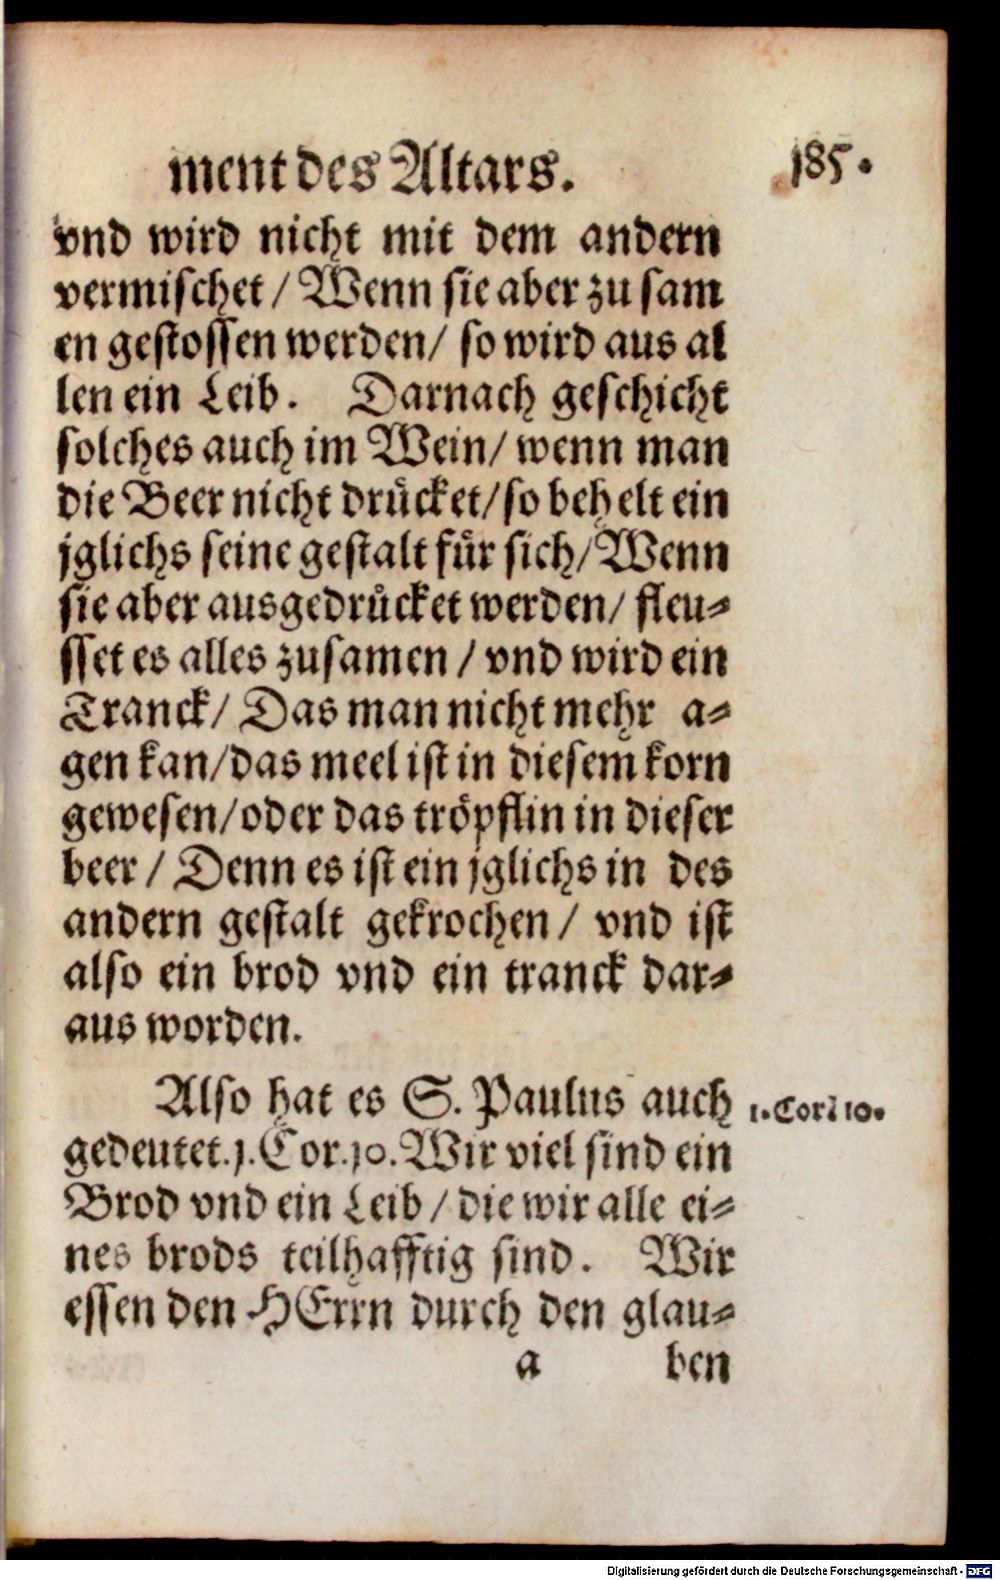 ment des Altars. 185.
vnd wird nicht mit dem andern
vermischet / Wenn sie aber zu sam
en gestossen werden/ so wird aus al
len ein Leib. Darnach geschicht
solches auch im Wein/ wenn man
die Beer nicht drücket/ so behelt ein
jglichs seine gestalt für sich/ Wenn
sie aber ausgedrücket werden/ fleu-
sset es alles zusamen / vnd wird ein
Tranck/ Das man nicht mehr a-
gen kan/das meel ist in diesem korn
gewesen/oder das tröpflin in dieser
beer / Denn es ist ein jglichs in des
andern gestalt gekrochen / vnd ist
also ein brod vnd ein tranck dar-
aus worden.
Also hat es S. Paulus auch 1. Cor. 10.
gedeutet. 1. Cor. 10. Wir viel sind ein
Brod vnd ein Leib / die wir alle ei-
nes brods teilhafftig sind. Wir
essen den HErrn durch den glau-
a ben
Digitalisierung gefördert durch die Deutsche Forschungsgemeinschaft - DFG